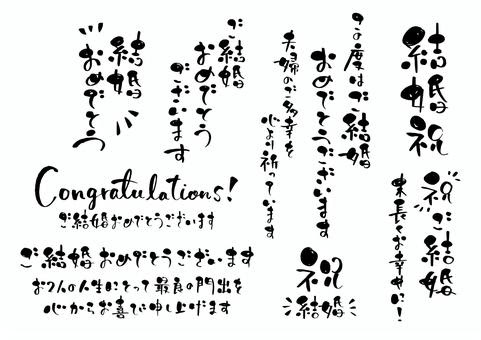 結婚祝
祝ご結婚
末長くお幸せに!
この度はご結婚
おめでとうございます
夫婦のご多幸を
心より祈っています
ご結婚
おめでとう
ございます
結婚
おめでとう
Congratulations!
ご結婚おめでとうございます
ご結婚おめでとうございます
お2人の人生にとって最良の門出を
心からお喜び申し上げます
祝
結婚